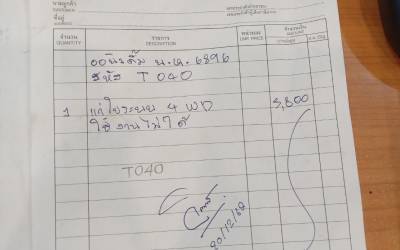 นามลูกค้า
ที่อยู่
จำนวน
QUANTITY
รายการ
DESCRIPTION
หน่วยละ
UNIT PRICE
จำนวนเงิน
AMOUNT
น.ห. 6896
รหัส T040
1 แก้ไขระบบ 4 WD 3,800
ใช้งานไม่ได้
T040
20/12/62